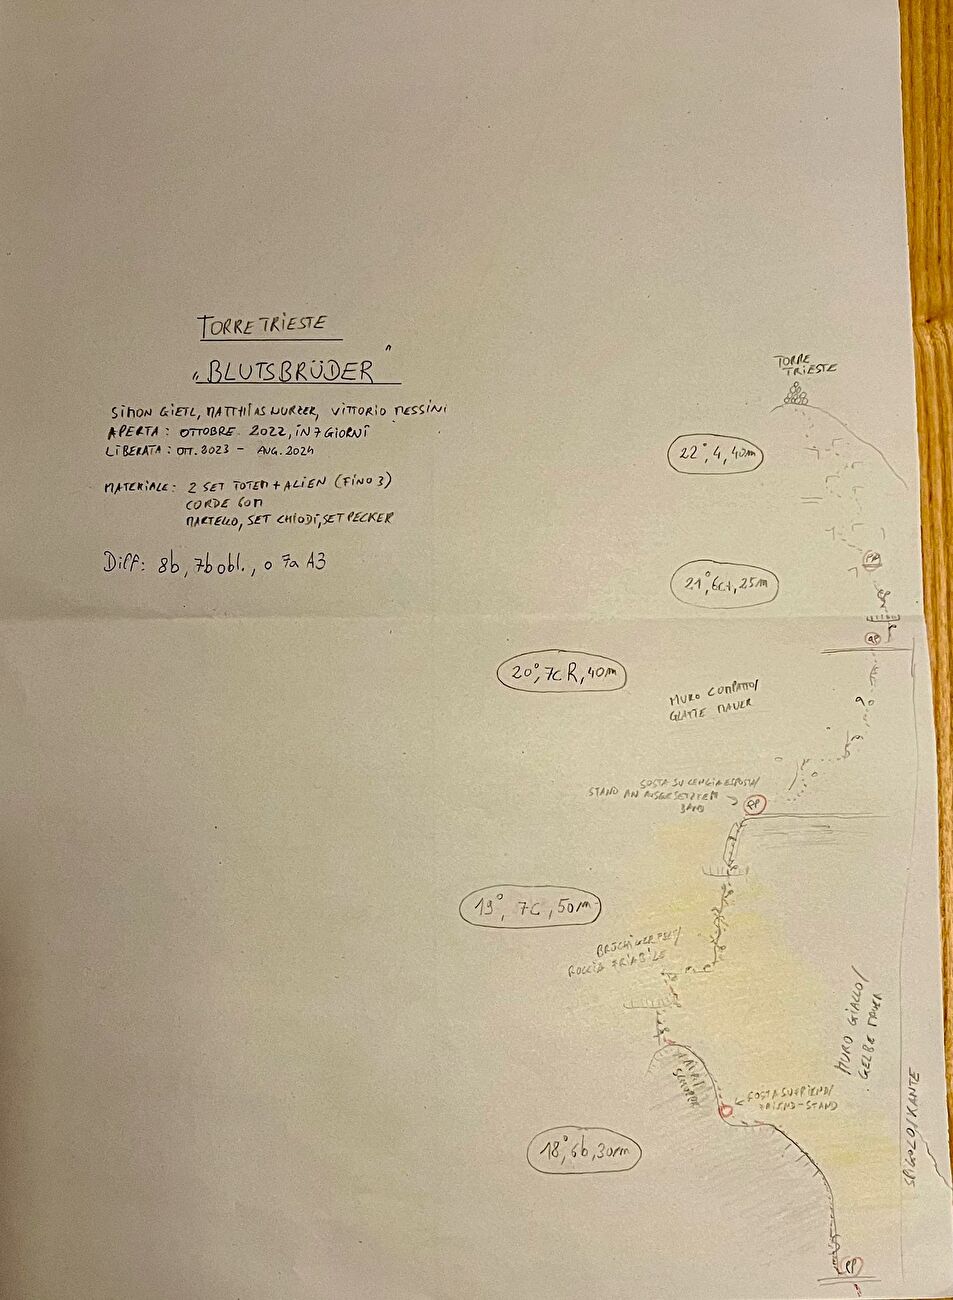 TORRE TRIESTE
"BLUTSBRÜDER"
SIMON GIETL, MATTHIAS WURZER, VITTORIO MESSINI
APERTA: OTTOBRE 2022, IN 7 GIORNI
LIBERATA: OTT. 2023 - AUG. 2024
MATERIALE: 2 SET TOTEM + ALIEN (FINO 3)
CORDE 60M
MARTELLO, SET CHIODI, SET PECKER
DIFF: 8b, 7b obl., o 7a A3
TORRE
TRIESTE
22°, 4, 40m
21°, 6c+, 25m
20°, 7c R, 40m
MURO COMPATTO/
GLATTE MAUER
SOSTA SU CENGIA ESPOSTA/
STAND AN AUSGESETZTEM
BAND
19°, 7c, 50m
BRÜCHIGER FELS/
ROCCIA FRIABILE
MURO GIALLO/
GELBE MAUER
SOSTA SU FRIEND/
FRIEND-STAND
18°, 6b, 30m
SPIGOLO/KANTE